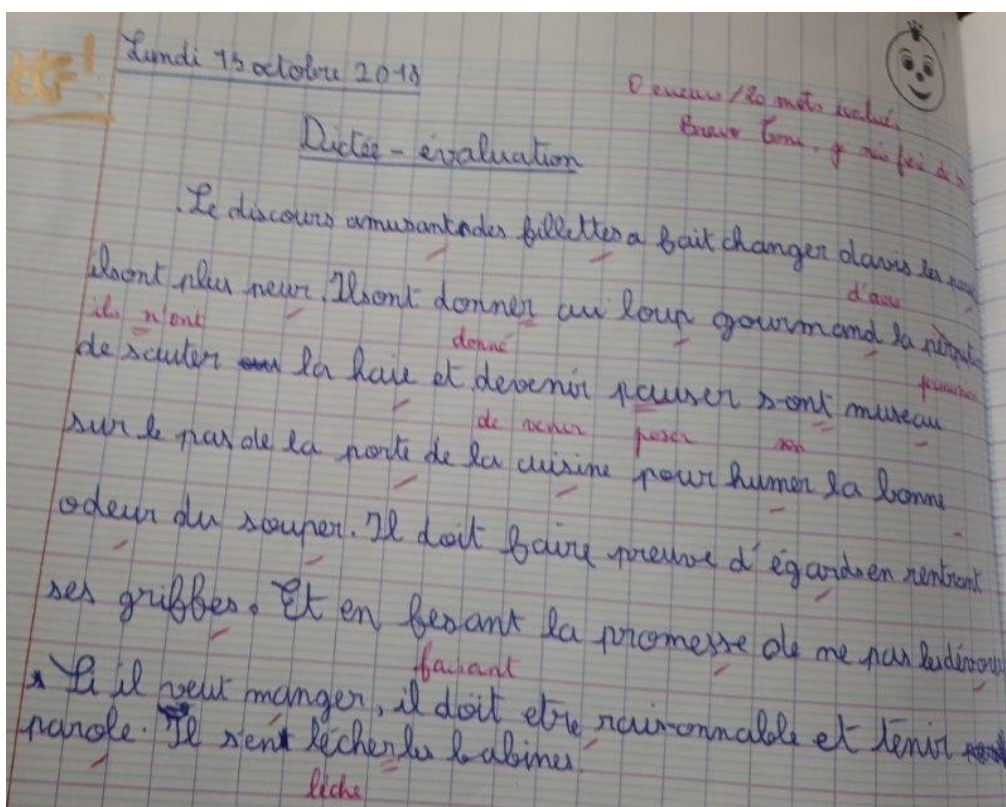 Lundi 15 octobre 2018
0 erreur / 20 mots évalués
Bravo
Dictée - évaluation
Le discours amusant des fillettes a fait changer davis les
d'avis
ilsont plus peur. Ilsont donner au loup gourmand la
ils n'ont donné permission
de sauter la haie et devenir pauser sont museau
de venir poser son
sur le pas de la porte de la cuisine pour humer la bonne
odeur du souper. Il doit faire preuve d'égards en rentrant
ses griffes. Et en fesant la promesse de ne pas les
faisant
Si il veut manger, il doit etre raisonnable et tenir
parole. Il s'en lécher les babines.
lèche